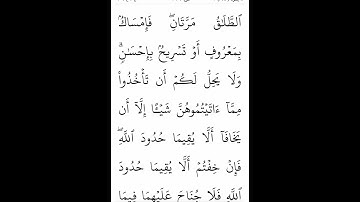 ٱلطَّلَـٰقُ مَرَّتَانِۖ فَإِمْسَاكُۢ
بِمَعْرُوفٍ أَوْ تَسْرِيحُۢ بِإِحْسَـٰنٍۗ
وَلَا يَحِلُّ لَكُمْ أَن تَأْخُذُوا۟
مِمَّآ ءَاتَيْتُمُوهُنَّ شَيْـًٔا إِلَّآ أَن
يَخَافَآ أَلَّا يُقِيمَا حُدُودَ ٱللَّهِۖ
فَإِنْ خِفْتُمْ أَلَّا يُقِيمَا حُدُودَ
ٱللَّهِ فَلَا جُنَاحَ عَلَيْهِمَا فِيمَا